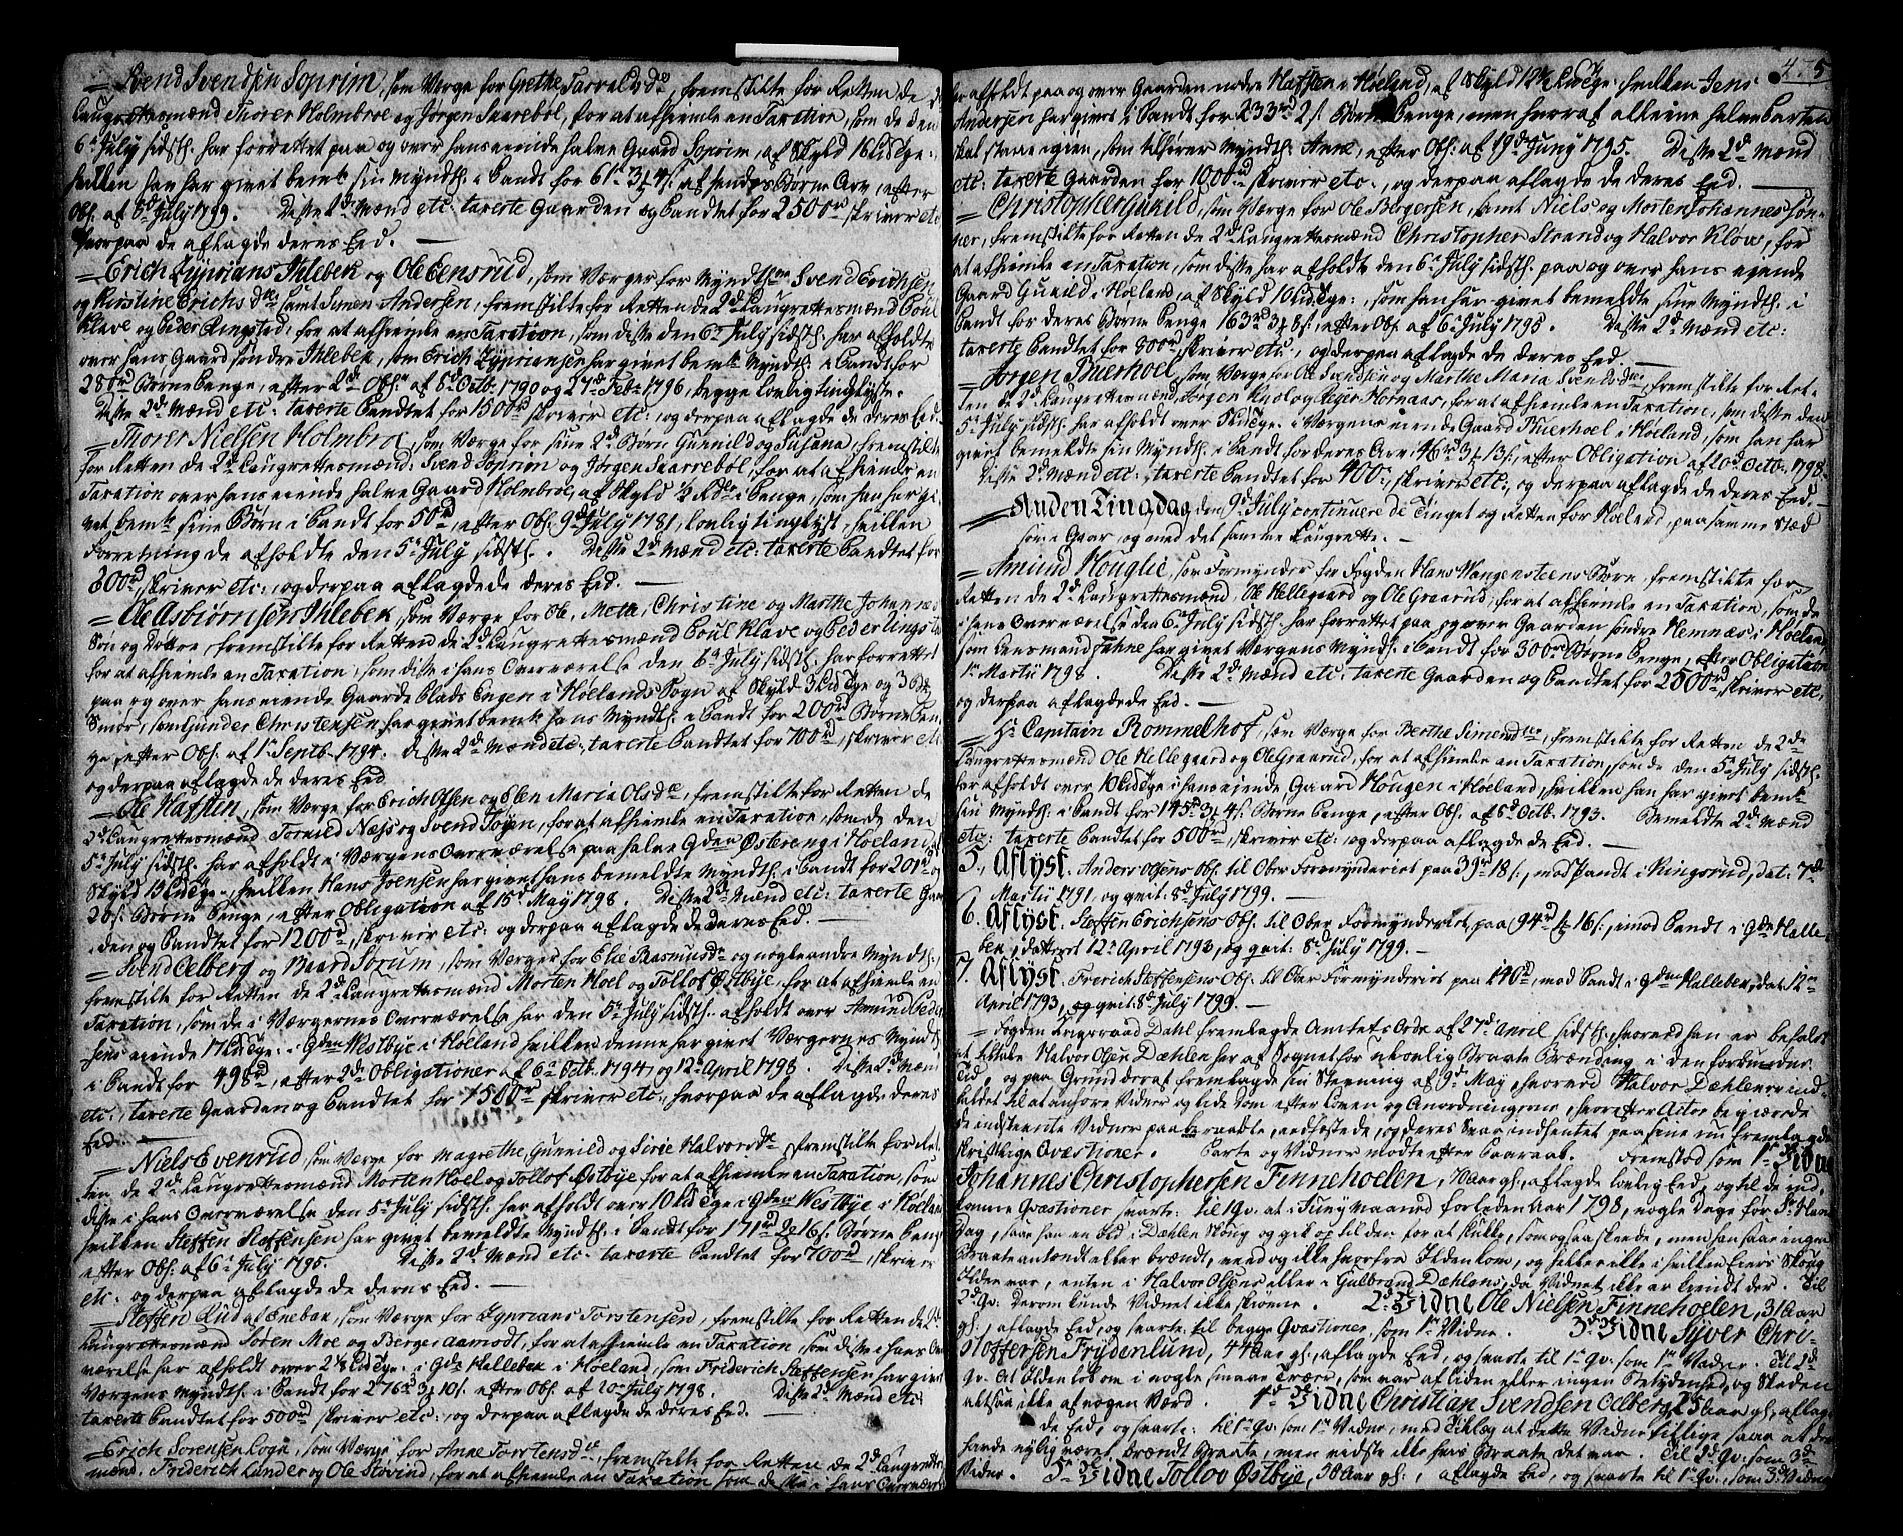 = Svend Svendsen Soprim, som Værge for Grethe Tarralds d., fremstilte for Retten de
Laugrettesmænd Thorer Holmbroe og Jørgen Skarrebøl, for at afhiemle en Taxation, som de den
6te July sidstl. har forrettet paa og over hans eiende halve Gaard Soprim, af Skyld
hvilken han har givet bemte sin Myndtl. i Pandt for Børne Arv, efter
Obl. af 8de July 1799. Disse 2de Mænd etc: taxerte Gaarden og Pandtet for 2500rd, skriver etc
hvorpaa de aflagde deres Eed. —
= Erich Zyprians Ihlebek og Ole Eensrud, som Værger for Myndtl. Svend Erichsen
og Kirstine Erichs dtr samt Simen Andersen, fremstilte for Retten de 2de Laugrettesmænd Poul
Klave og Peder Ringstad: for at afhiemle en Taxation, som disse den 6te July sidstl. har afholdte
over hans Gaard søndre Ihlebek, som Erich Zypriansen har givet bemte Myndtl. i Pandt for
288rd Børne Penge, efter 2de Obl. af 8de Octb. 1790 og 27de Feb. 1796, begge lovlig tinglyste.
Disse 2de Mænd etc: taxerte Pandtet for 1500rd skriver etc: og derpaa aflagde de deres Eed.
= Thorer Nielsen Holmbroe, som Værge for sine 2de Børn Gunnild og Susana, fremstilte
for Retten de 2de Laugrettesmænd: Svend Soprim og Jørgen Skarrebøl, for at afhiemle en
Taxation over hans eiende halve Gaard Holmbroe, af Skyld i Penge, som han har gi-
vet bemte sine Børn i Pandt for 50rd, efter Obl. 9de July 1781, lovlig tinglyst, hvilken
Forretning de afholdte den 5te July sidstl. Disse 2de Mænd etc: taxerte Pandtet for
600rd, skriver etc:, og derpaa aflagde de deres Eed. —
= Ole Asbiørnsen Ihlebek, som Værge for Ole, Mette, Christine og Marthe Johannes
Søn og Døttre, fremstilte for Retten de 2de Laugrettesmænd Poul Klave og Peder Ringstad
for at afhiemle en Taxation, som disse i hans Overværelse den 6te July sidstl. har forrettet
paa og over hans eiende Gaarde Plads Engen i Hølands Sogn af Skyld og
Smør, som Gunder Christensen har givet bemte hans Myndtl. i Pandt for 200rd Børne Pen-
ge, efter Obl. af 1te Septb. 1794. Disse 2de Mænd etc: taxerte Pandtet for 700rd, skriver etc
og derpaa aflagde de deres Eed.
= Ole Hafsten, som Værge for Erich Olsen og Elen Maria Olsdtr, fremstilte for Retten de
2de Laugrettesmænd Tormud Næss og Svend Toyen, for at afhiemle en Taxation, som de den
5te July sidstl. har afholdt i Værgens Overværelse paa halve Gden Østereng i Høeland
Skyld hvilken Hans Joensen har givet hans bemeldte Myndtl. i Pandt for 201rd og
20s. Børne Penge, efter Obligation af 15de May 1798. Disse 2de Mænd etc: taxerte Gaar-
den og Pandtet for 1200rd, skriver etc: og derpaa aflagde de deres Eed. —
= Svend Celberg og Baard Sorum, som Værger for Elie Rasmusdr og nogle andre Myndtl.,
fremstilte for Retten de 2de Laugrettesmænd Morten Hoel og Tollof Østbye, for at afhiemle en
Taxation, som de i Værgernes Overværelse har den 5te July sidstl. afholdt over Amund Peder
sens eiende i Gden Westbye i Høeland hvilken denne har givet Værgernes Myndtl.
i Pandt for 498rd, efter 2de Obligationer af 6te Octb. 1794, og 12de April 1798. Disse 2de Mænd
etc:, taxerte Gaarden og Pandtet for 1500rd skriver etc:, hvorpaa de aflagde deres
Eed. —
= Niels Evenrud, som Værge for Magrethe, Gunnild og Sirie Halvorsdtr, fremstilte for Ret-
ten de 2de Laugrettesmænd Morten Hoel og Tollof Østbye for at afhiemle en Taxation, som
disse i hans Overværelse den 5te July sidstl. har afholdt over i Gden Westbye i Høeland
hvilken Steffen Steffensen har givet bemeldte Myndtl. i Pandt for 171rd 16s. Børne Penge
efter Obl. af 6te July 1795. Disse 2de Mænd etc: taxerte Pandtet for 700rd, skriver
etc: og derpaa aflagde de deres Eed. —
= Steffen Rud af Enebak, som Værge for Zyprians Torstensen, fremstilte for Retten de 2de
Laugrettesmænd Søren Moe og Berger Aamodt, for at afhiemle en Taxation, som disse i hans Over
værelse har afholdt over i Gden Hallebek i Høeland, som Friderich Steffensen har givet
Værgens Myndtl. i Pandt for 276rd 10s. efter Obl. af 20de July 1798. Disse 2de Mænd etc:
taxerte Pandtet for 500rd skriver etc:, og derpaa aflagde de deres Eed. —
= Erich Sørensen Kogn, som Værge for Anne Torstensdtr, fremstilte for Retten de 2de Laugrettes
mænd, Friderich Lunder og Ole Støvind, for at afhiemle en Taxation som de i hans Overværelse
475
har afholdt paa og over Gaarden nedre Hafsten i Høeland, af Skyld hvilken Jens
Andersen har givet i Pandt for 233rd 2s. Børne Penge, men hvoraf alleine halve Parten
skal staae igien, som tilhører Myndtl. Anne, efter Obl. af 19de Juny 1795. Disse 2de Mænd
etc: taxerte Gaarden for 1000rd, skriver etc:, og derpaa aflagde de deres Eed. —
= Christopher Gukild, som Værge for Ole Borgersen, samt Niels og Morten Johannessøn-
ner, fremstilte for Retten de 2de Laugrettesmænd Christopher Strand og Halvor Kløw, for
at afhiemle en Taxation, som disse har afholdt den 6te July sidstl. paa og over hans eiende
Gaard Gukild i Høeland, af Skyld som han har givet bemeldte sine Myndtl. i
Pandt for deres Børne Penge 163rd 8s., efter Obl. af 6te July 1795. Disse 2de Mænd etc:
taxerte Pandtet for 800rd, skriver etc:, og derpaa aflagde de deres Eed. —
= Jørgen Buerhoel, som Værge for Ole Svendsen og Marthe Maria Svendsdtr, fremstilte for Ret-
ten de 2de Laugrettesmænd, Jørgen Knol og Peger Hornaas, for at afhiemle en Taxation, som disse den
5te July sidstl. har afholdt over i Værgens eiende Gaard Buerhoel i Høeland, som han har
givet bemeldte sin Myndtl. i Pandt for deres Arv, 46rd 13s., efter Obligation af 10de Octb. 1798.
Disse 2de Mænd etc:, taxerte Pandtet for 400, skriver etc:, og derpaa aflagde de deres Eed. —
= Anden Tingdag den 9de July continuerede Tinget og Retten for Høeland, paa samme Stæd
som i Gaar, og med det samme Laugrette. —
= Amund Houglie, som Formynder for Fogden Hans Wangensteens Børn, fremstilte for
Retten de 2de Laugrettesmænd, Ole Hellegaard og Ole Graarud, for at afhiemle en Taxation, som de
i hans Overværelse den 6te July sidstl. har forrettet paa og over Gaarden søndre Hemnæs i Høeland
som Lensmand Fahne har givet Værgens Myndtl. i Pandt for 300rd Børne Penge, efter Obligation
1te Martii 1798. Disse 2de Mænd etc: taxerte Gaarden og Pandtet for 2500rd, skriver etc,
og derpaa aflagde de Eed. —
= Hr Captain Rommelhof, som Værge for Berthe Simensdtr, fremstilte for Retten de 2de
Laugrettesmænd Ole Hellegaard og Ole Graarud, for at afhiemle en Taxation, som de den 5te July sidstl.
har afholdt over i hans eiende Gaard Hougen i Høeland, hvilken han har givet bemte
sin Myndtl. i Pandt for 145rd 4s. Børne Penge, efter Obl. af 5te Octb. 1793. Bemeldte 2de Mænd
etc: taxerte Pandtet for 500rd, skriver etc: og derpaa aflagde de Eed. —
5., Aflyst. Anders Olsens Obl. til Ober Formynderiet paa 39rd 18s., mod Pandt i Ringsrud, dat: 7de
Martii 1791, og qvit: 8de July 1799. —
6. Aflyst. Steffen Erichsens Obl. til Ober Formynderiet, paa 94rd 16s., imod Pandt i Gden Halle-
bek, datteret 12te April 1793, og qvit: 8de July 1799. —
7. Aflyst. Frerich Steffensens Obl. til Ober Formynderiet paa 140rd, mod Pandt i Gden Hallebek, dat: 12te
April 1793, og qvit: 8de July 1799. —
= Fogden Krigsraad Dahl fremlagde Amtets Ordre af 27de April sidstl., hvorved han er befalet
at tiltale Halvor Olsen Dæhlen har af Sognet for ulovlig Braate Brænding i den forbudne
Tid, og paa Grund deraf fremlagde sin Stevning af 9de May, hvorved Halvor Dæhlen er ind-
kaldet til at anhøre Vidner og lide Dom efter Loven og Anordningerne, hvorefter Actor begiærede
de indstevnte Vidner paaberaabte, eedfæstede, og deres Svar indhentet paa sine nu fremlagde
skriftlige Qvæstioner. Parte og Vidner mødte efter Paaraab. Fremstod som 1te Vidne
Johannes Christophersen Finnehoelen, aflagde lovlig Eed, og til de ind-
komne Qvæstioner svarte: til 1 Qv. at i Juny Maaned forleden Aar 1798, nogle Dage for St. Hans
Dag, saae han en Ild i Dæhlen Skoug og gik op til den for at slukke, som ogsaa skeede, men han saae ingen
Braate antændt eller brændt, veed og ikke hvorfra Ilden kom, og heller ikke i hvilken Eiers Skoug
Ilden var, enten i Halvor Olsens eller i Gulbrand Dæhlens, da Vidnet ikke er kiendt der. Til
2de Qv: Derom kunde Vidnet ikke skiønne. 2det Vidne Ole Nielsen Finnehoelen, 31 Aar
gl., aflagde Eed, og svarte til begge Qvæstioner, som 1te Vidne. 3de Vidne Syver Chri-
stoffersen Frydenlund, 44 Aar gl., aflagde Eed, og svarte til 1te Qv: som 1te Vidne. Til 2de
Qv. At Ilden løb om i nogle smaae Træer, som var af liden eller ingen Betydenhed, og Skaden
altsaa ikke af nogen Værd. 4de Vidne Christian Svendsen Celberg, 25 Aar gl., aflag-
de Eed, og svarte: til 1te Qv. som 1te Vidne, med Tillæg at dette Vidne tillige saae at der
havde nylig været brændt Braate, men vidste ikke hvis Braate det var. Til 2de Qv: som 3de
Vidne. 5te Vidne Tollov Østbye, 38 Aar gl., aflagde Eed, og svarte til 1te Qv:, som 3de Vidne